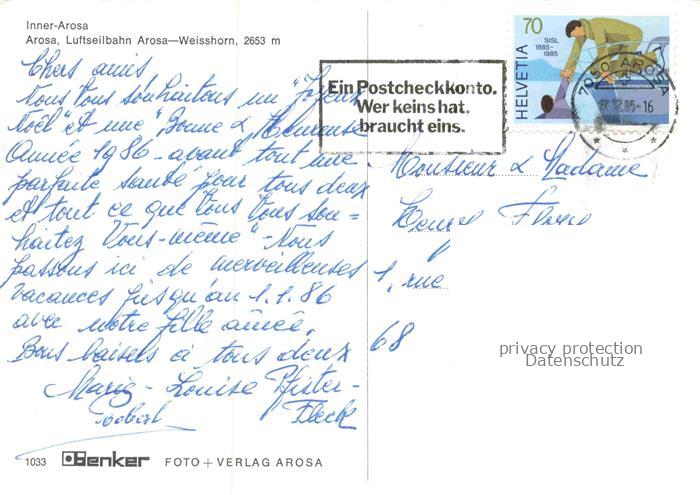 Inner-Arosa
Arosa, Luftseilbahn Arosa—Weisshorn, 2653 m
Chers amis
Nous Vous souhaitons un "Joyeux
Noël" et une "Bonne & Heureuse
Année 1986 - avant tout une
parfaite santé pour tous deux
et tout ce que Vous Vous sou=
haitez Vous-même" - Nous
passons ici de merveilleuses
vacances jusqu'au 1.1.86
avec notre fille aînée.
Bons baisers à tous deux
Marie-Louise Pfister-
Fleck
1033 Denker FOTO + VERLAG AROSA
Ein Postcheckkonto.
Wer keins hat,
braucht eins.
70
SISL
1885-
1985
HELVETIA
7050 AROSA
12.85-16
Monsieur & Madame
1, rue
68
privacy protection
Datenschutz